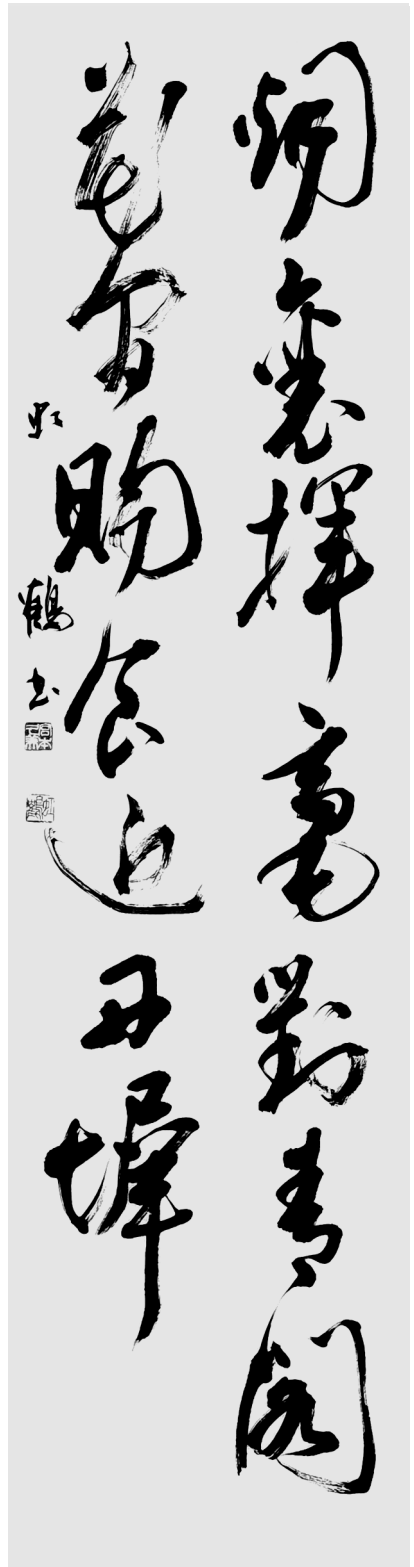 烟裏揮毫對青閣
花間賜食近丹墀
虹鶴書